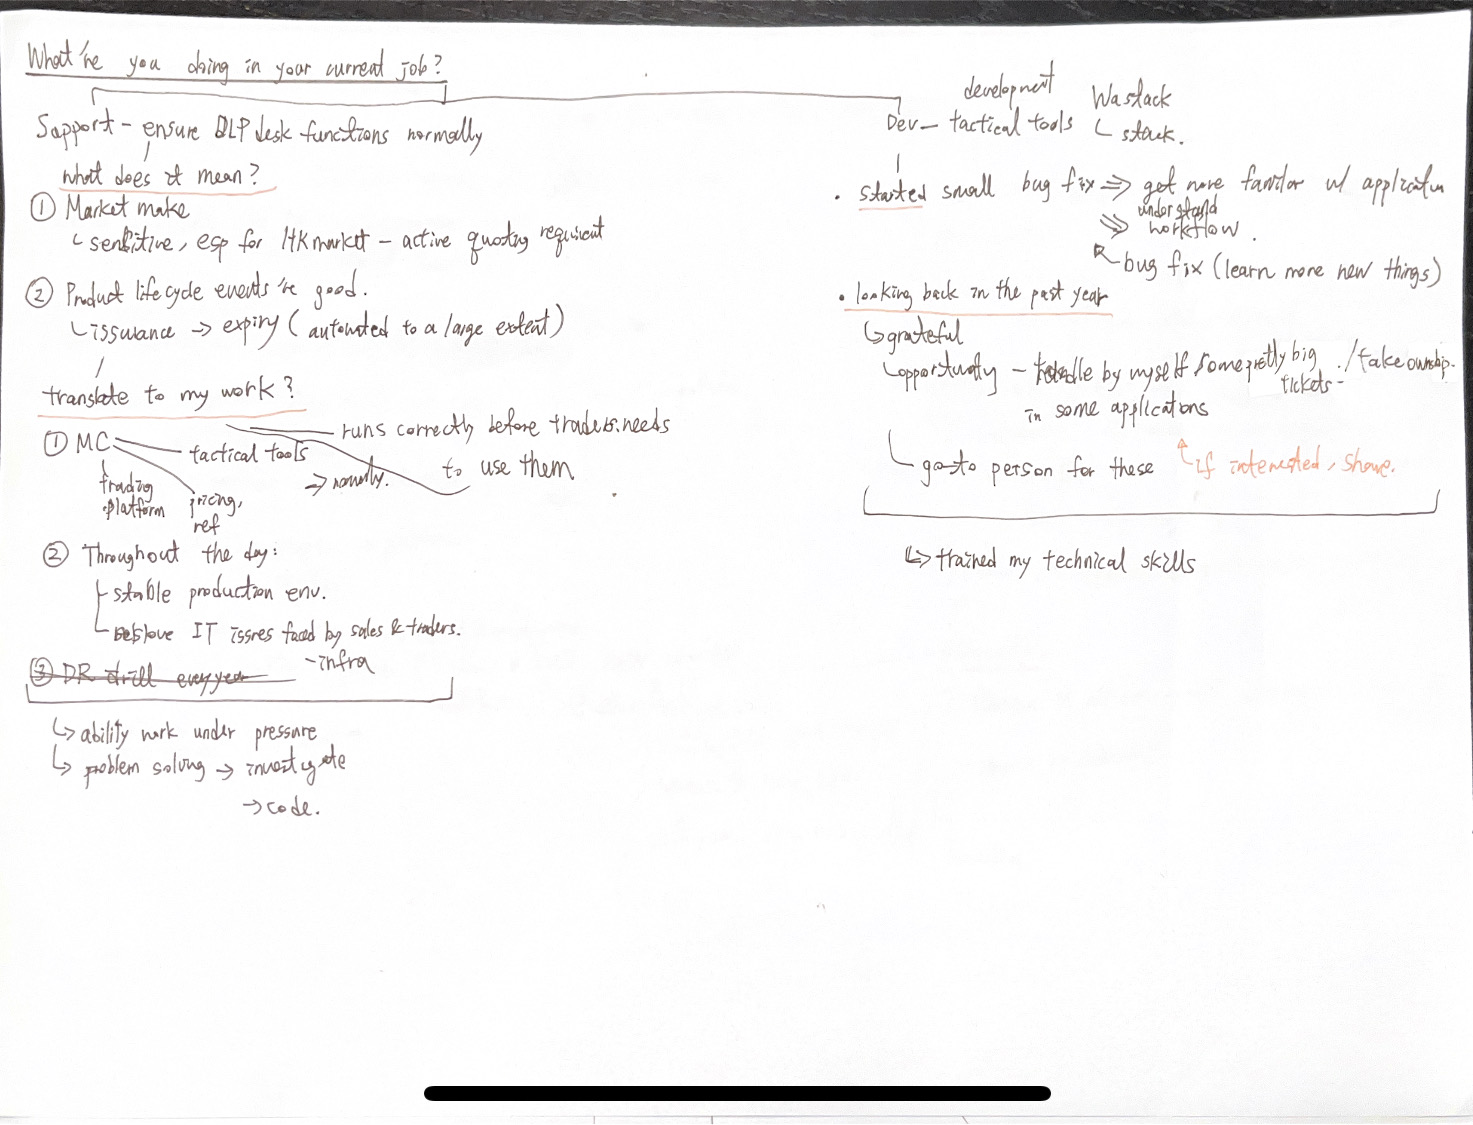 What're you doing in your current job?
Support - ensure DLP desk functions normally
what does it mean?
① Market make
↳ sensitive, esp for HK market - active quoting requirent
② Product lifecycle events're good.
↳ issuance → expiry (automated to a large extent)
translate to my work?
① MC
tactical tools
trading platform
pricing, ref
⇒ normally.
runs correctly before traders needs
to use them
② Throughout the day:
stable production env.
IT issues faced by sales & traders.
- infra
③ DR drill every year
↳ ability work under pressure
↳ problem solving → investigate
→ code.
development
Dev - tactical tools
stack.
• started small bug fix ⇒ get more familiar w/ application
⇒ understand workflow.
bug fix (learn more new things)
• looking back in the past year
↳ grateful
↳ opportunity - handle by myself some pretty big tickets - / take ownership.
in some applications
go-to person for these
if interested, share.
↳ trained my technical skills